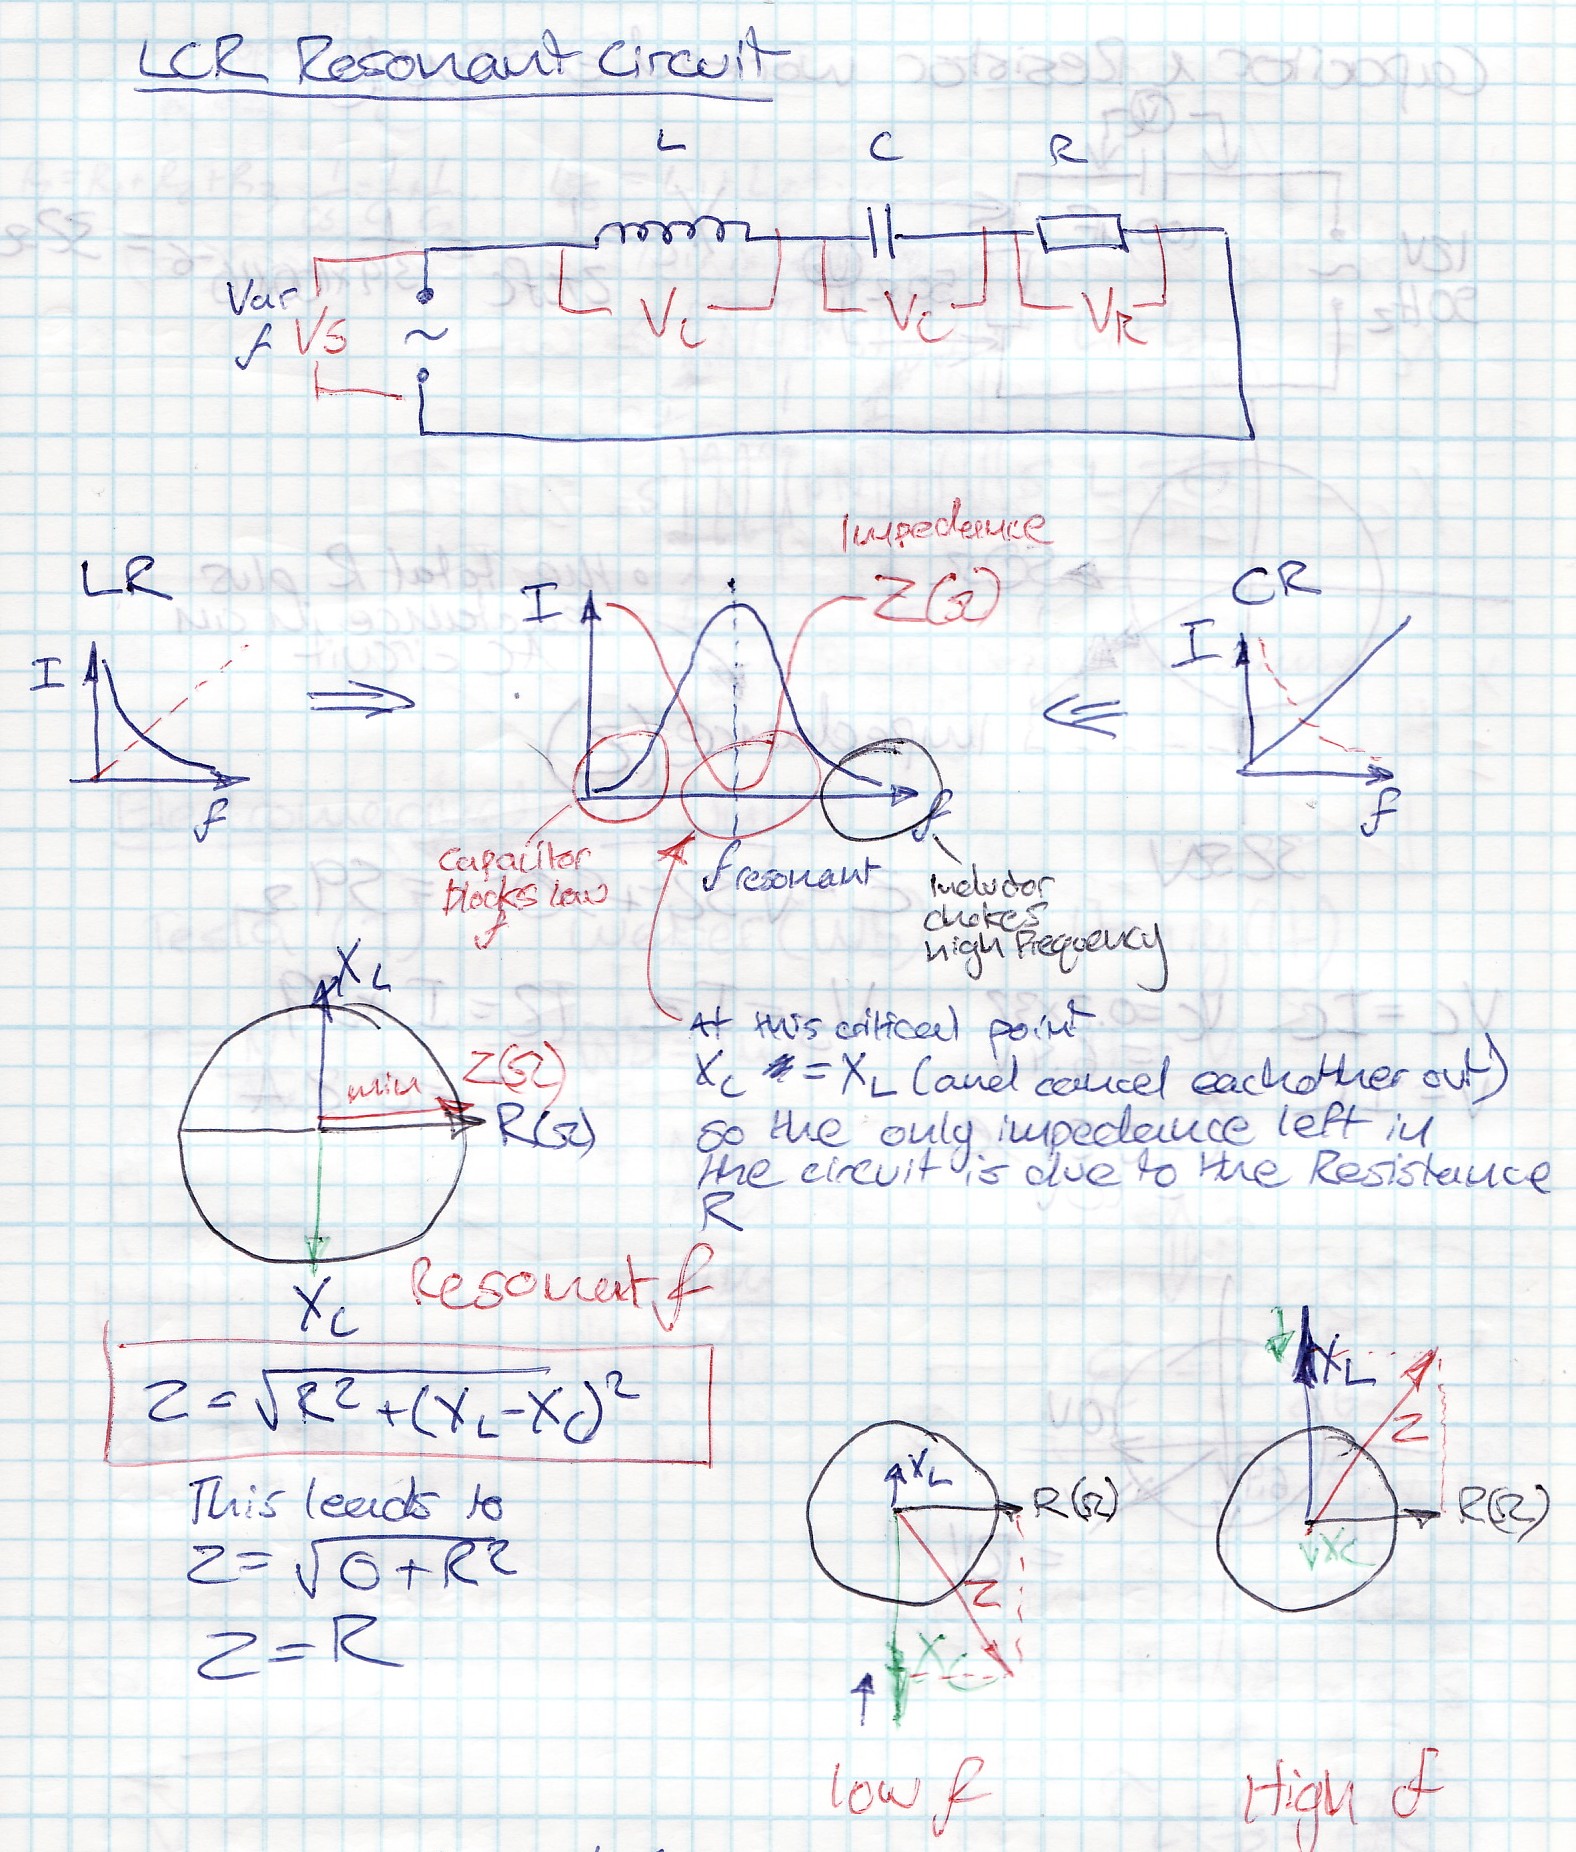 LCR Resonant Circuit
L C R
Var
f
VS
~
VL VC VR
Impedance
Z(Ω)
LR
I
f
I
f
CR
I
f
Capacitor
blocks low
f
f resonant
Inductor
chokes
high frequency
XL
min
Z(Ω)
R(Ω)
XC
Resonant f
At this critical point
XC = XL (and cancel eachother out)
so the only impedance left in
the circuit is due to the Resistance
R
Z = √R² + (XL - XC)²
This leads to
Z = √0 + R²
Z = R
XL
R(Ω)
Z
XC
low f
XL
Z
R(Ω)
XC
High f